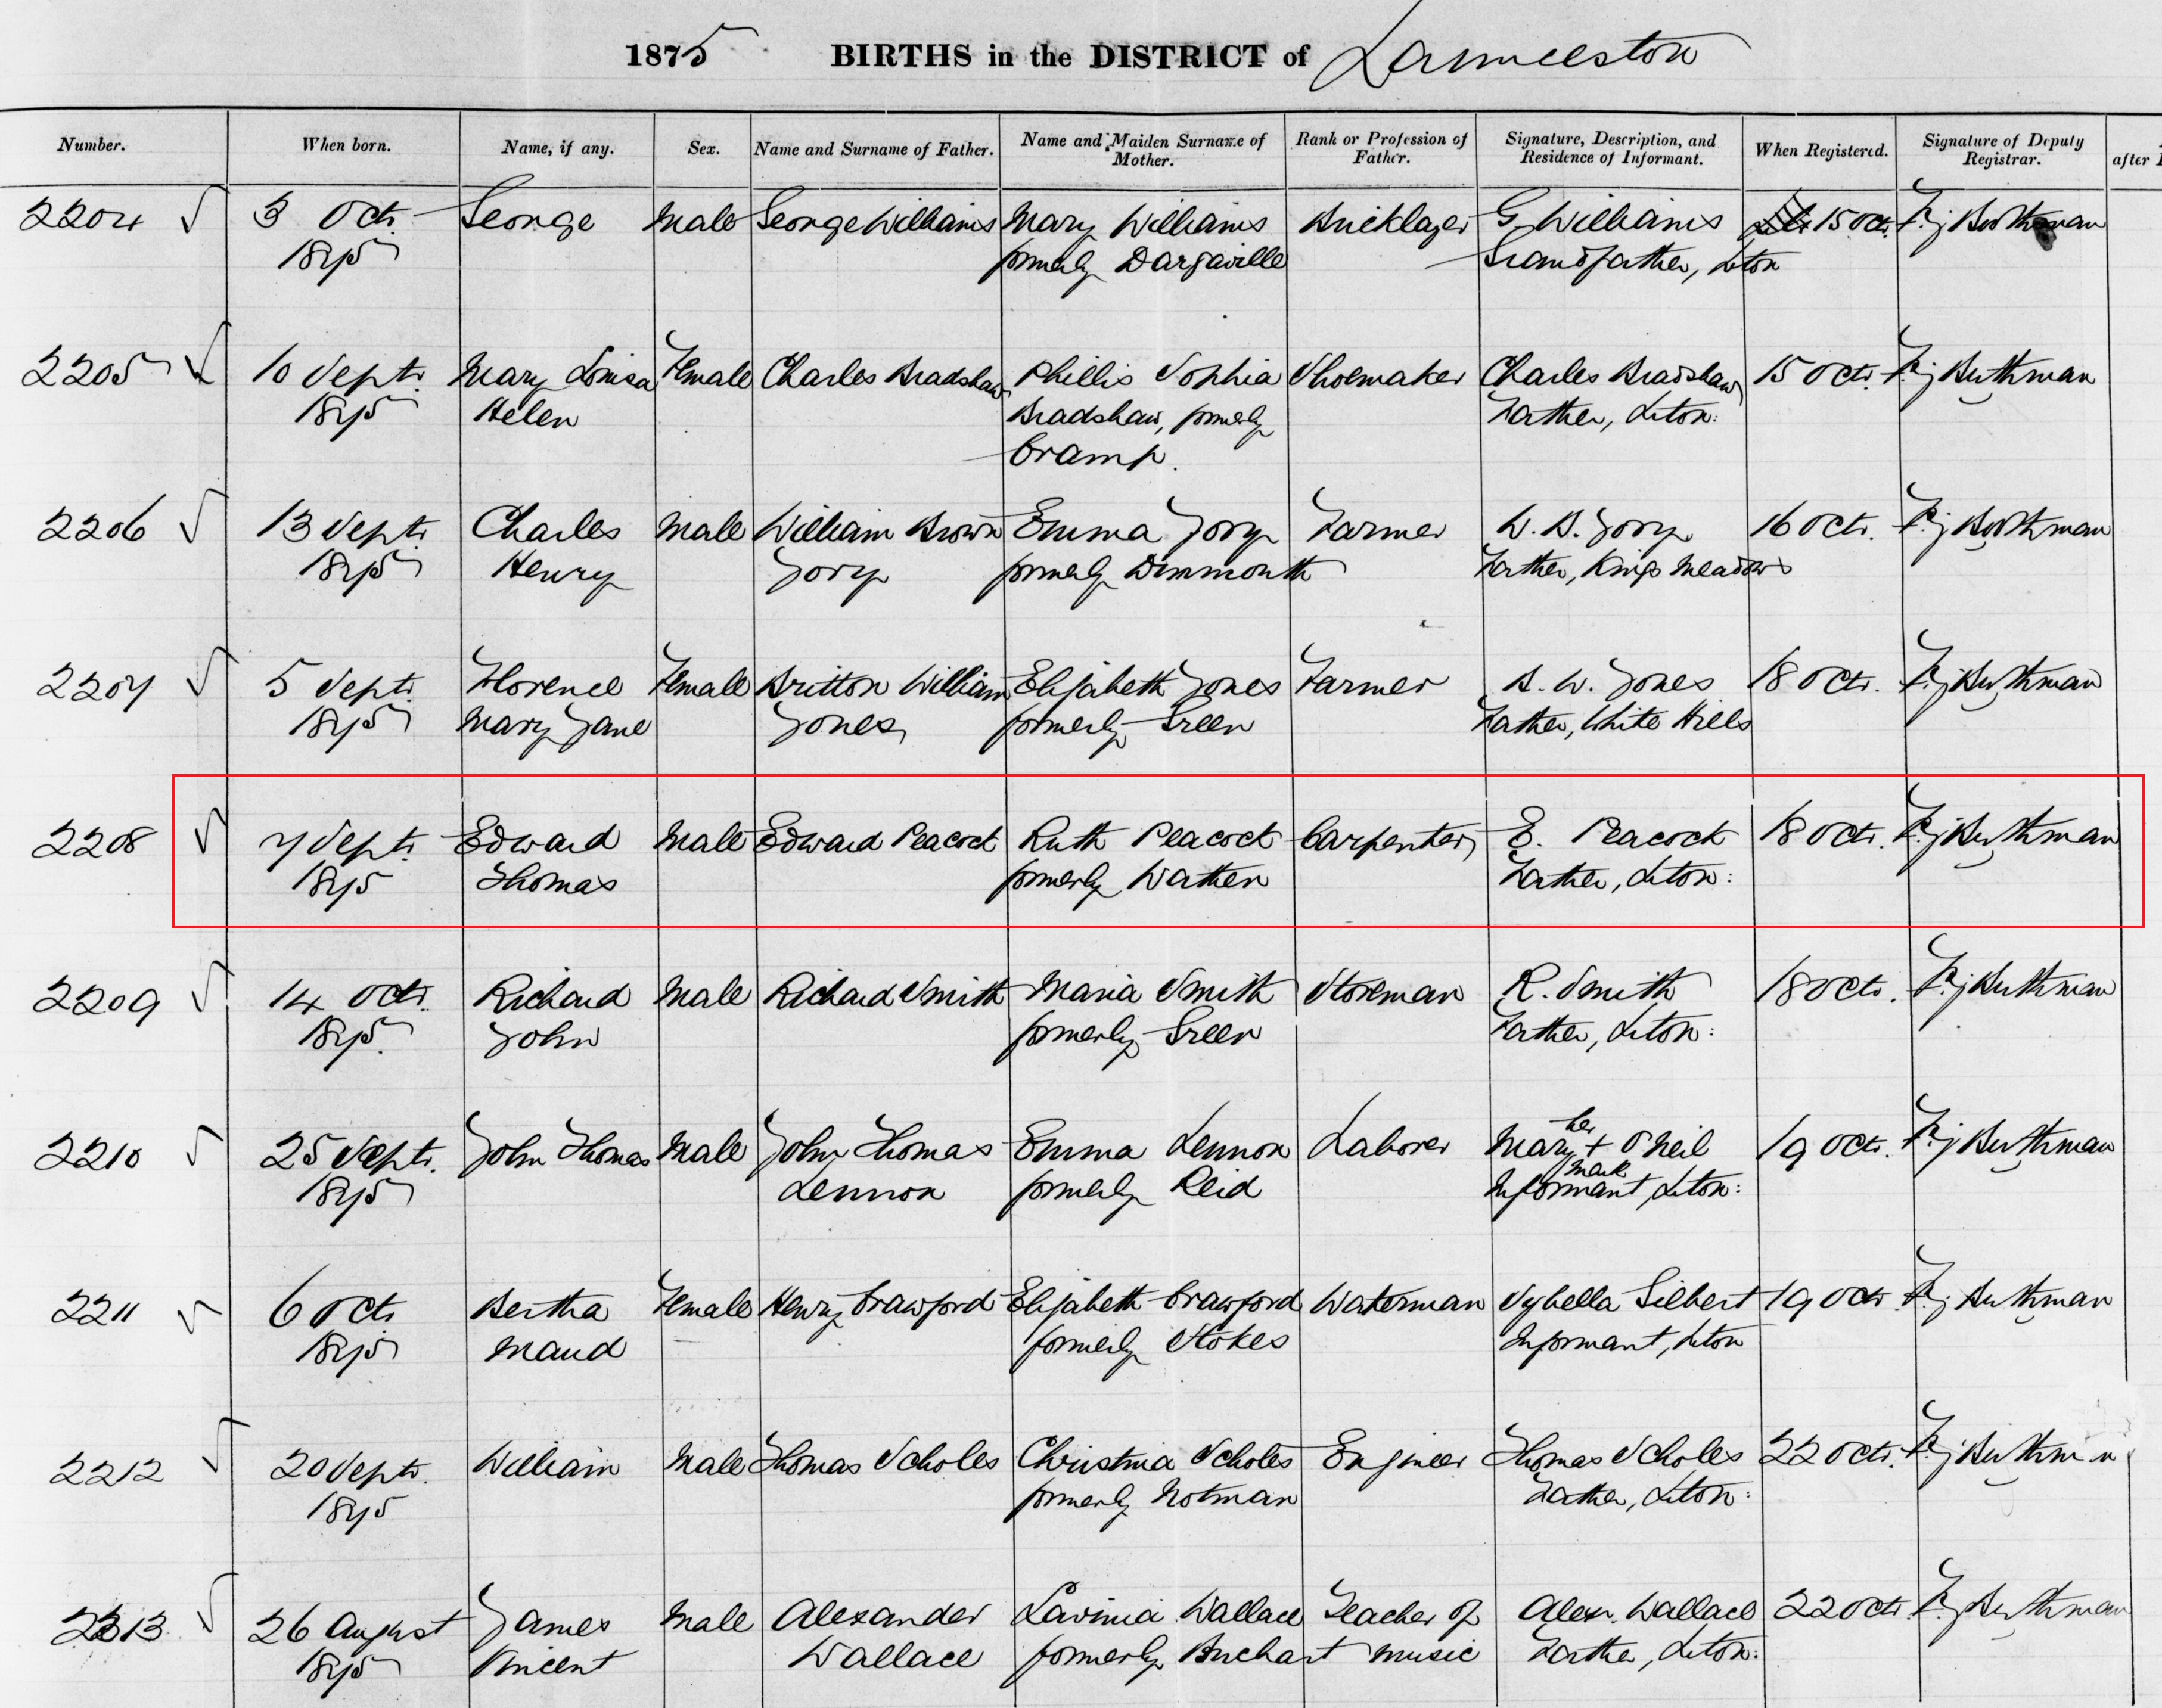 1875 BIRTHS in the DISTRICT of Launceston
Number. When born. Name, if any. Sex. Name and Surname of Father. Name and Maiden Surname of Mother. Rank or Profession of Father. Signature, Description, and Residence of Informant. When Registered. Signature of Deputy Registrar. after
2204 3 Octr. George Male George Williams Mary Williams Bricklayer G. Williams 15 Octr.
1875 formerly Dargaville Grandfather, Lton
2205 10 Septr. Mary Louisa Female Charles Bradshaw Phillis Sophia Shoemaker Charles Bradshaw 15 Octr.
1875 Helen Bradshaw, formerly Father, Lton:
Cramp.
2206 13 Septr. Charles Male William Brown Emma Jory Farmer W. B. Jory 16 Octr.
1875 Henry Jory formerly Father, Kings Meadows
2207 5 Septr. Florence Female Britton William Elizabeth Jones Farmer B. W. Jones 18 Octr.
1875 Mary Jane Jones formerly Green Father, White Hills
2208 7 Septr. Edward Male Edward Peacock Ruth Peacock Carpenter E. Peacock 18 Octr.
1875 Thomas formerly Wathen Father, Lton:
2209 14 Octr. Richard Male Richard Smith Maria Smith Storeman R. Smith 18 Octr.
1875. John formerly Green Father, Lton:
2210 25 Septr. John Thomas Male John Thomas Emma Lennon Laborer Mary her + mark O'Neil 19 Octr.
1875 Lennon formerly Reid Informant, Lton:
2211 6 Octr Bertha Female Henry Crawford Elizabeth Crawford Waterman Sybella Gilbert 19 Octr
1875 Maud formerly Stokes Informant, Lton
2212 20 Septr. William Male Thomas Scholes Christina Scholes Engineer Thomas Scholes 22 Octr.
1875 formerly Notman Father, Lton:
2213 26 August James Male Alexander Lavinia Wallace Teacher of Alexr. Wallace 22 Octr
1875 Vincent Wallace formerly Buchart music Father, Lton: